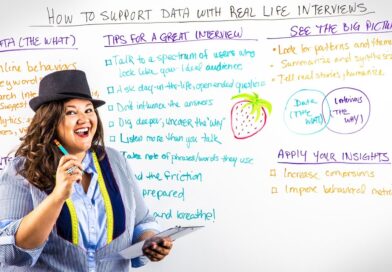 HOW TO SUPPORT DATA WITH REAL LIFE INTERVIEWS
DATA (THE WHAT)
online behaviors
keyword
TIPS FOR A GREAT INTERVIEW
Talk to a spectrum of users who
look like your ideal audience
Ask day-in-the-life, open ended questions
Don't influence the answers
Dig deeper, uncover the 'WHY'
Listen more than you talk
Take note of phrases/words they use
the friction
prepared
and breathe!
SEE THE BIG PICTURE
Look for patterns and themes
Summarize and synthesize
Tell real stories, humanize
Data
(THE
WHAT)
Interviews
(THE
WHY)
APPLY YOUR INSIGHTS
Increase conversions
Improve behavioral metrics